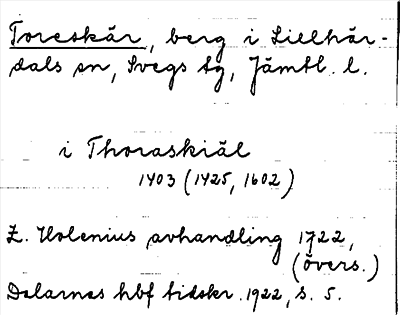 Toreskär, berg i Lillhär-
dals sn, Svegs tg, Jämtl. l.
i Thoraskiäl
1403 (1425, 1602)
Z. Holenius avhandling 1722,
(övers.)
Dalarnes hbf tidskr. 1922, s. 5.